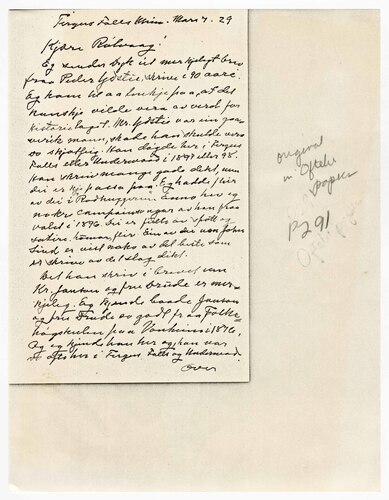 Fergus Falls Minn. Mars 7. 29
Kjære Rölvaag!
Eg sender Dyk eit merkjelegt brev
fraa Peder Ydstie, skrive i 90 aarè.
Eg kom til aa tenkje paa, at det
kanskje vilde vera av verd for
historielaget. Mr. Ydstie var ein gaa-
verik mann, skade han skulde vera
so Han dögde her i Fergus
Falls eller Underwood i 1897 eller 98.
Han skreiv mange gode dikt, um
dei er kje passa paa. Eg hadde fleir
av dei i Rodhuggeren. Enno hev eg
nokre campaignsongar av han fraa
valet i 1896. Dei er fulle av spott og
satire, humor, fleir. Ein av dei um John
Lind er vel noko av det beste som
er skrive av det slag dikt.
Det han skriv i brevet um
Kr. Janson og fru Drude er mer-
kjeleg. Eg kjende baade Janson
og fru Drude so godt fraa Folke-
högskulen paa Vonheim i 1876,
Og eg kjende han her og han var
ofte her i Fergus Falls og Underwood.
over
original
in Oftelie
papers
P291